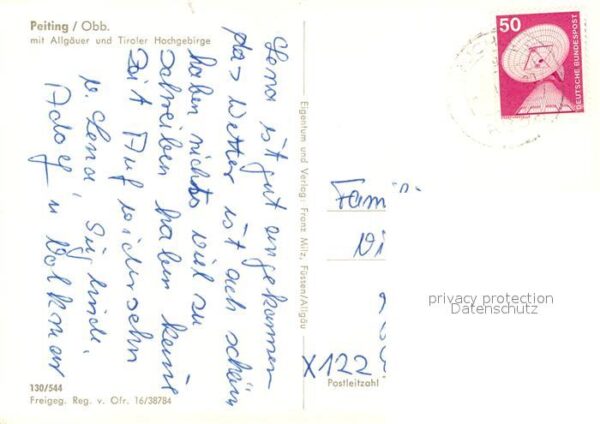 Peiting / Obb.
mit Allgäuer und Tiroler Hochgebirge
Lena ist gut angekommen
das Wetter ist auch schön
haben nichts viel zu
schreiben haben keine
Zeit Auf wiedersehn
v. Lena Siglinde
Adolf u Volkmar
130/544
Freigeg. Reg. v. Ofr. 16/38784
Eigentum und Verlag: Franz Milz, Füssen/Allgäu
50
DEUTSCHE BUNDESPOST
Fam
Vi
X122
Postleitzahl
privacy protection
Datenschutz